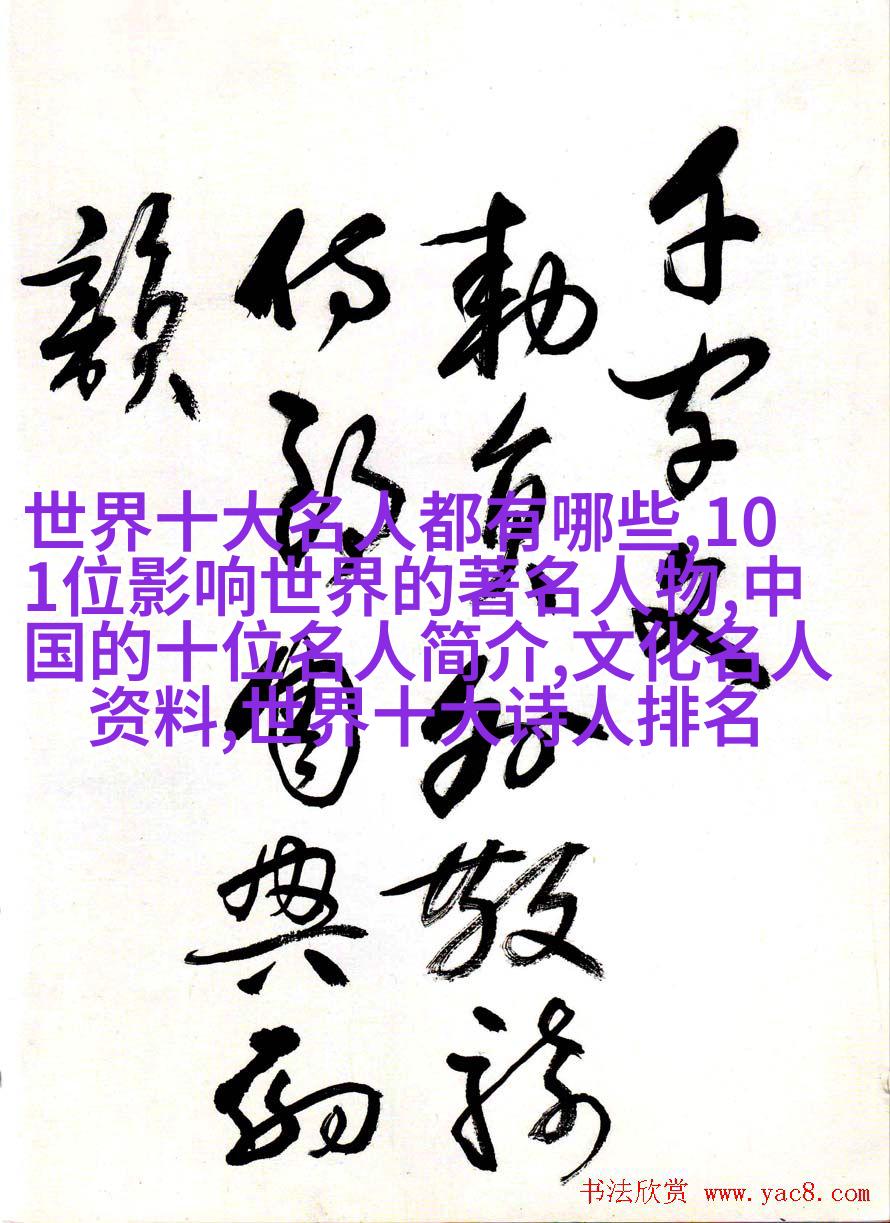 千字文
勅員外散騎
侍郎周興嗣
韻
世界十大名人都有哪些,10
1位影响世界的著名人物,中
国的十位名人简介,文化名人
资料,世界十大诗人排名
书法欣赏 www.yac8.com